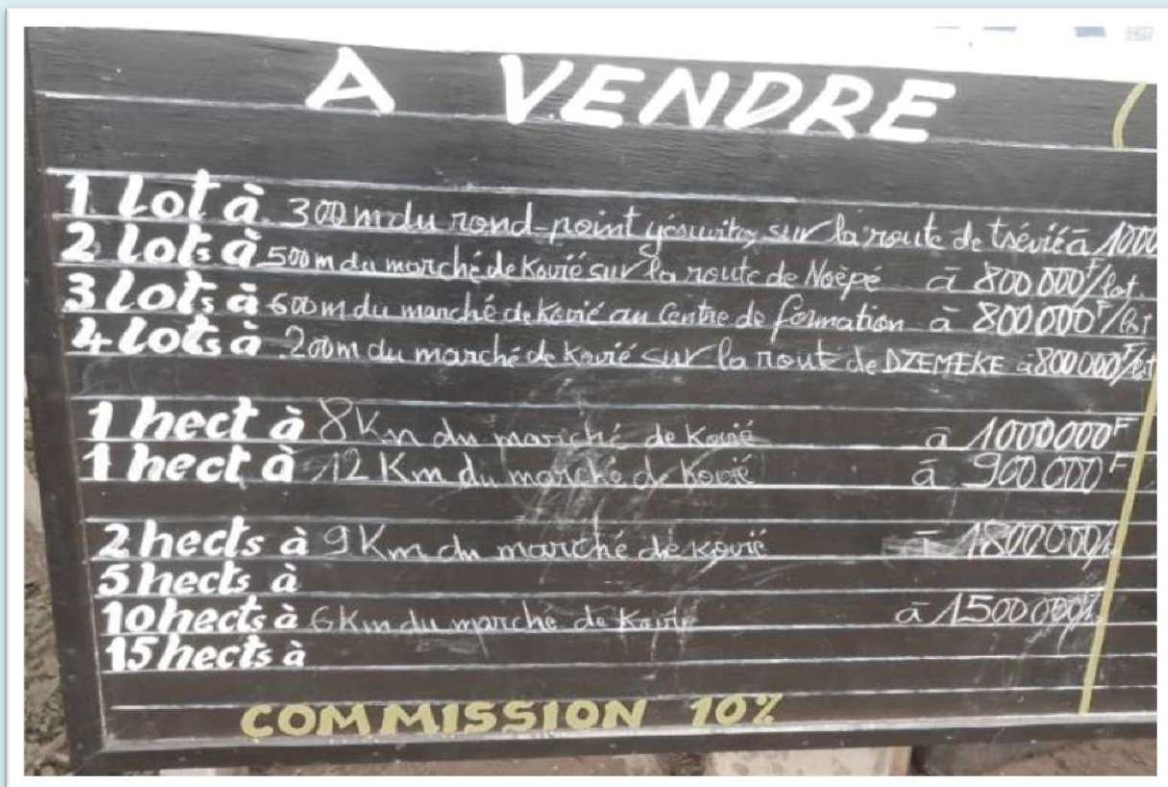 A VENDRE
1 Lot à 300m du rond-point sur la route de tsévié à 1000
2 Lots à 500m du marché de Kovié sur la route de Noèpé à 800 000F/lot
3 Lots à 600m du marché de Kovié au Centre de formation à 800 000F/lot
4 Lots à 200m du marché de Kovié sur la route de DZEMEKE à 800 000F/lot
1 hect à 8 Km du marché de Kovié à 1000000F
1 hect à 12 Km du marché de Kovié à 900 000F
2 hects à 9 Km du marché de Kovié à 1800000/h
5 hects à
10 hects à 6 Km du marché de Kovié à 1500 000/h
15 hects à
COMMISSION 10%